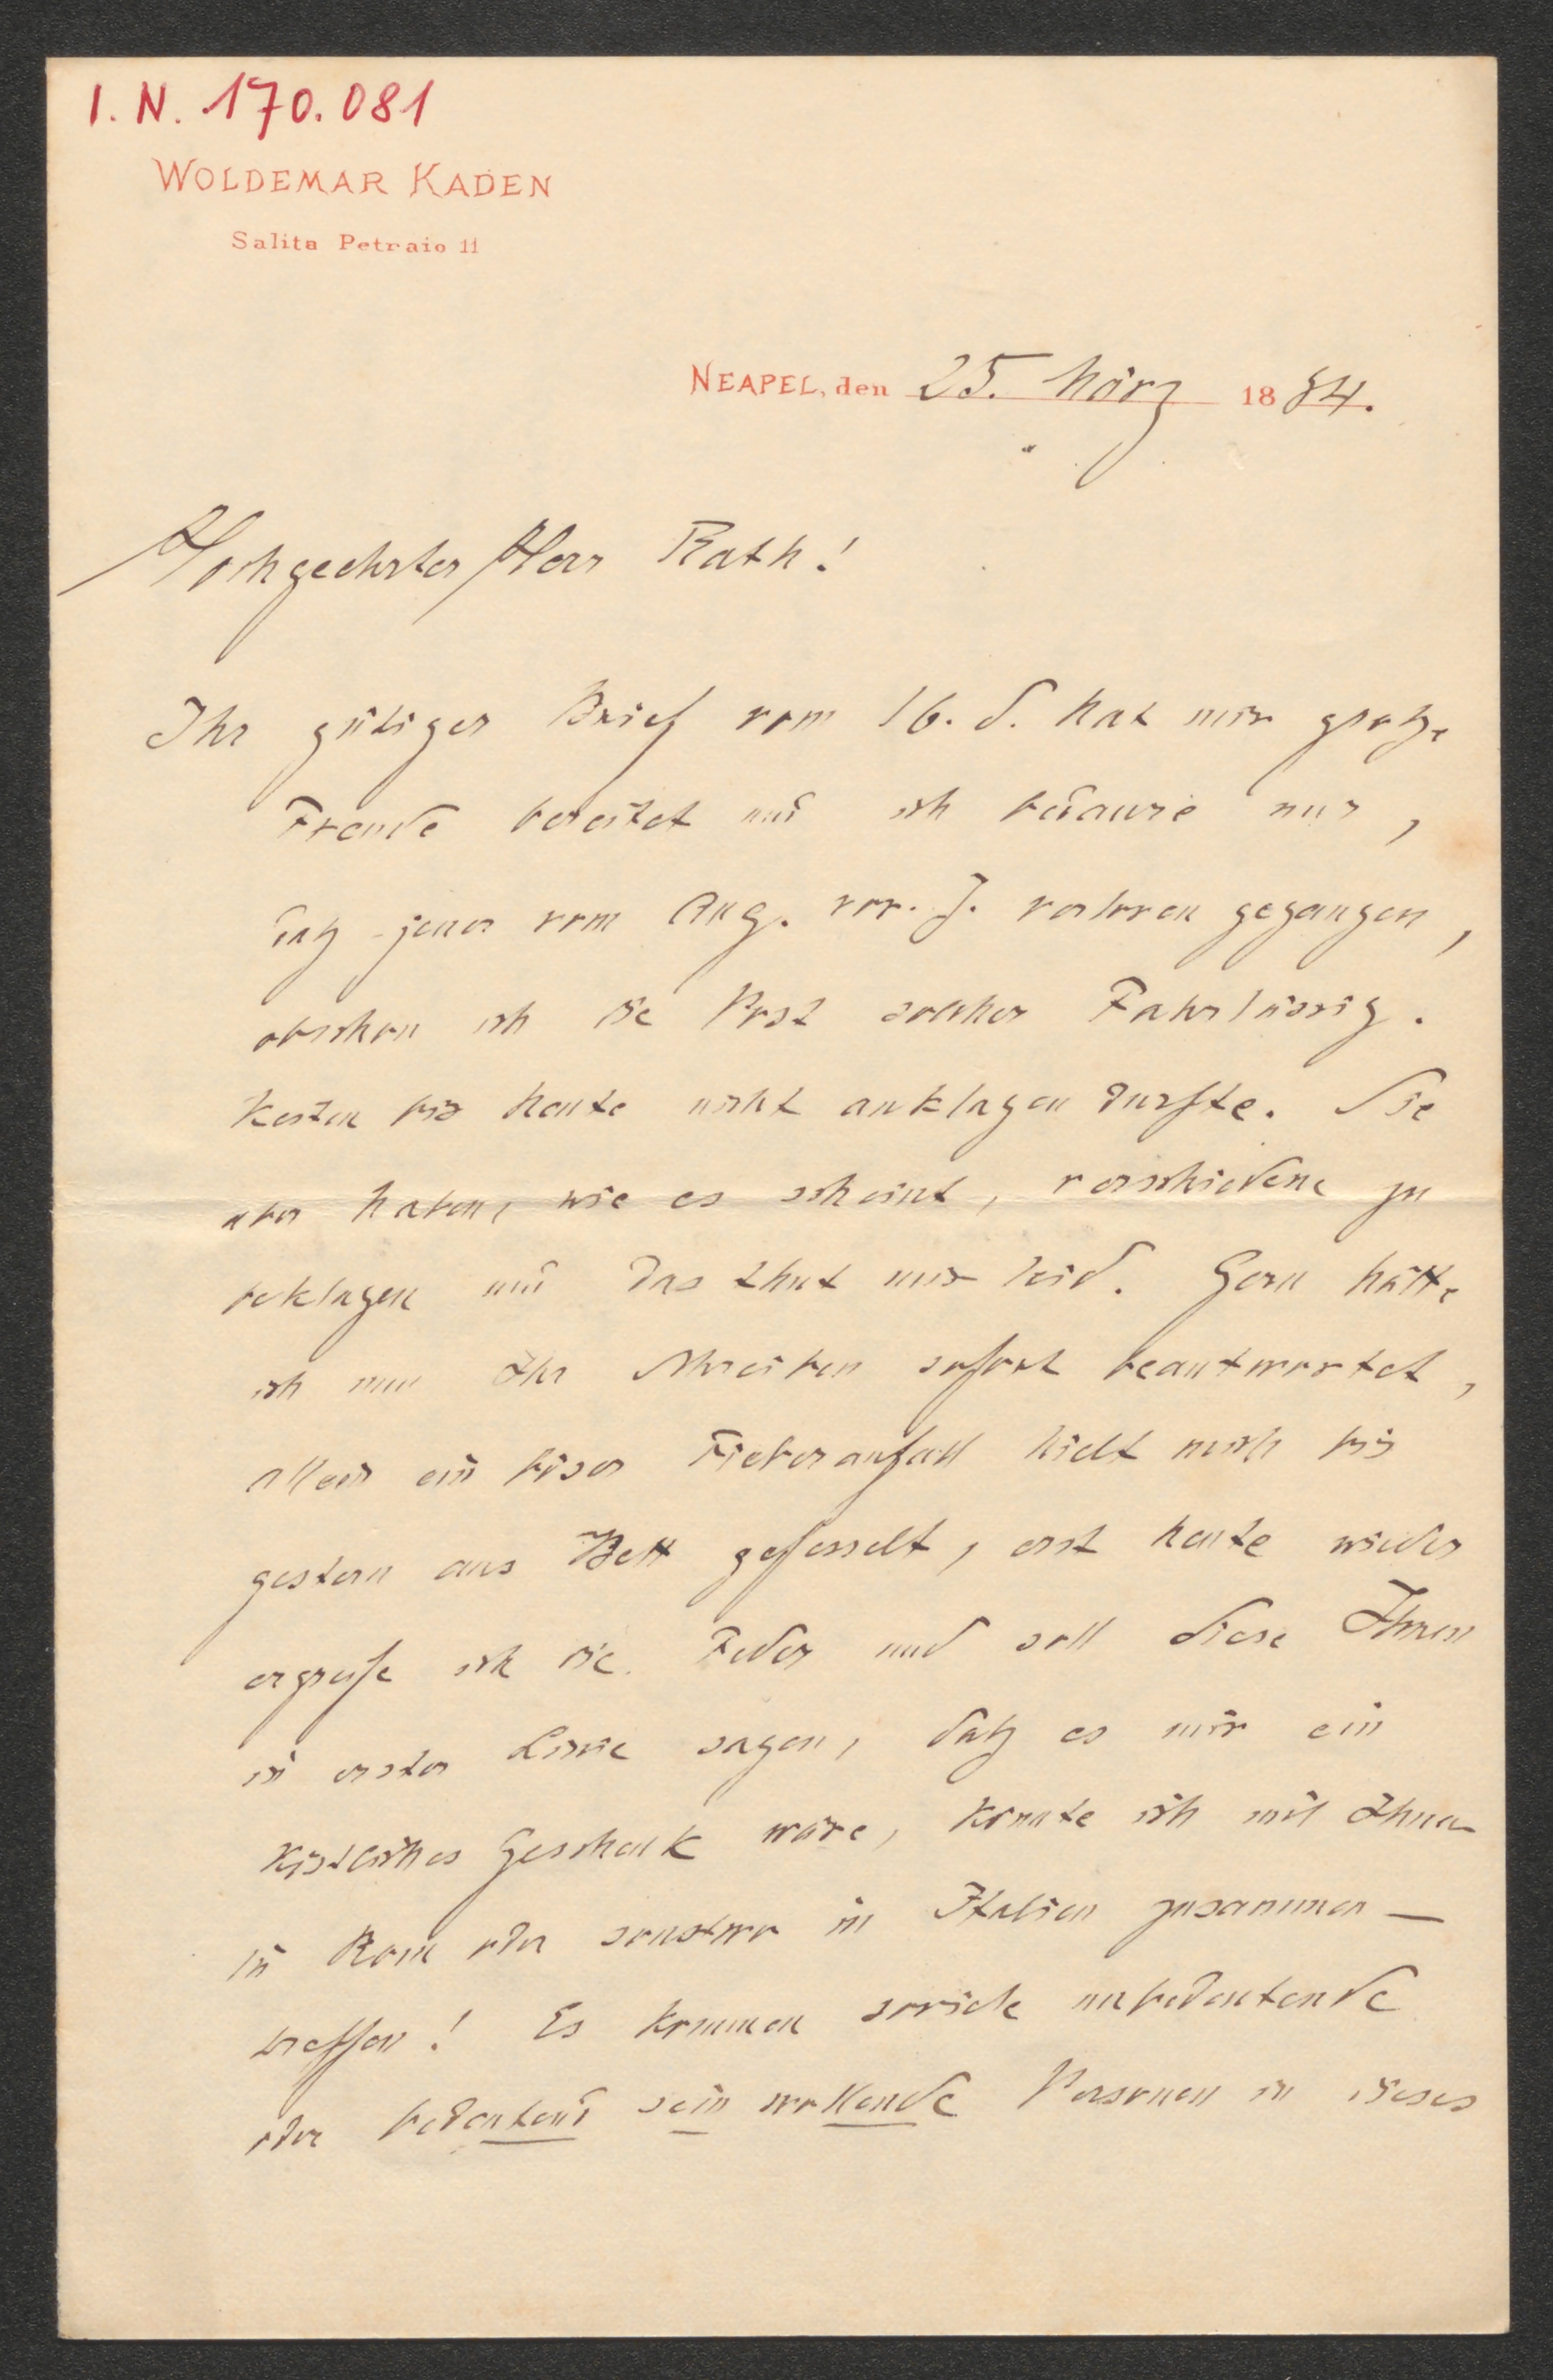 I. N. 170.081
WOLDEMAR KADEN
Salita Petraio 11
NEAPEL, den 25. März 1884.
Hochgeehrter Herr Rath!
Ihr gütiger Brief vom 16. d. hat mir große
Freude bereitet und ich bedaure nur,
daß jener vom Aug. vor. J. verloren gegangen,
obschon ich die Post solcher Fahrlässig-
keiten bis heute nicht anklagen durfte. Sie
aber haben, wie es scheint, verschiedene zu
beklagen und das thut mir leid. Gern hätte
ich nun Ihr Schreiben sofort beantwortet,
allein ein böser Fieberanfall hielt mich bis
gestern ans Bett gefesselt, erst heute wieder
ergreife ich die Feder und soll diese Ihnen
in erster Linie sagen, daß es mir ein
köstliches Geschenk wäre, könnte ich mit Ihnen
in Rom oder sonstwo in Italien zusammen-
treffen! Es kommen soviele unbedeutende
oder bedeutend sein wollende Personen in dieses